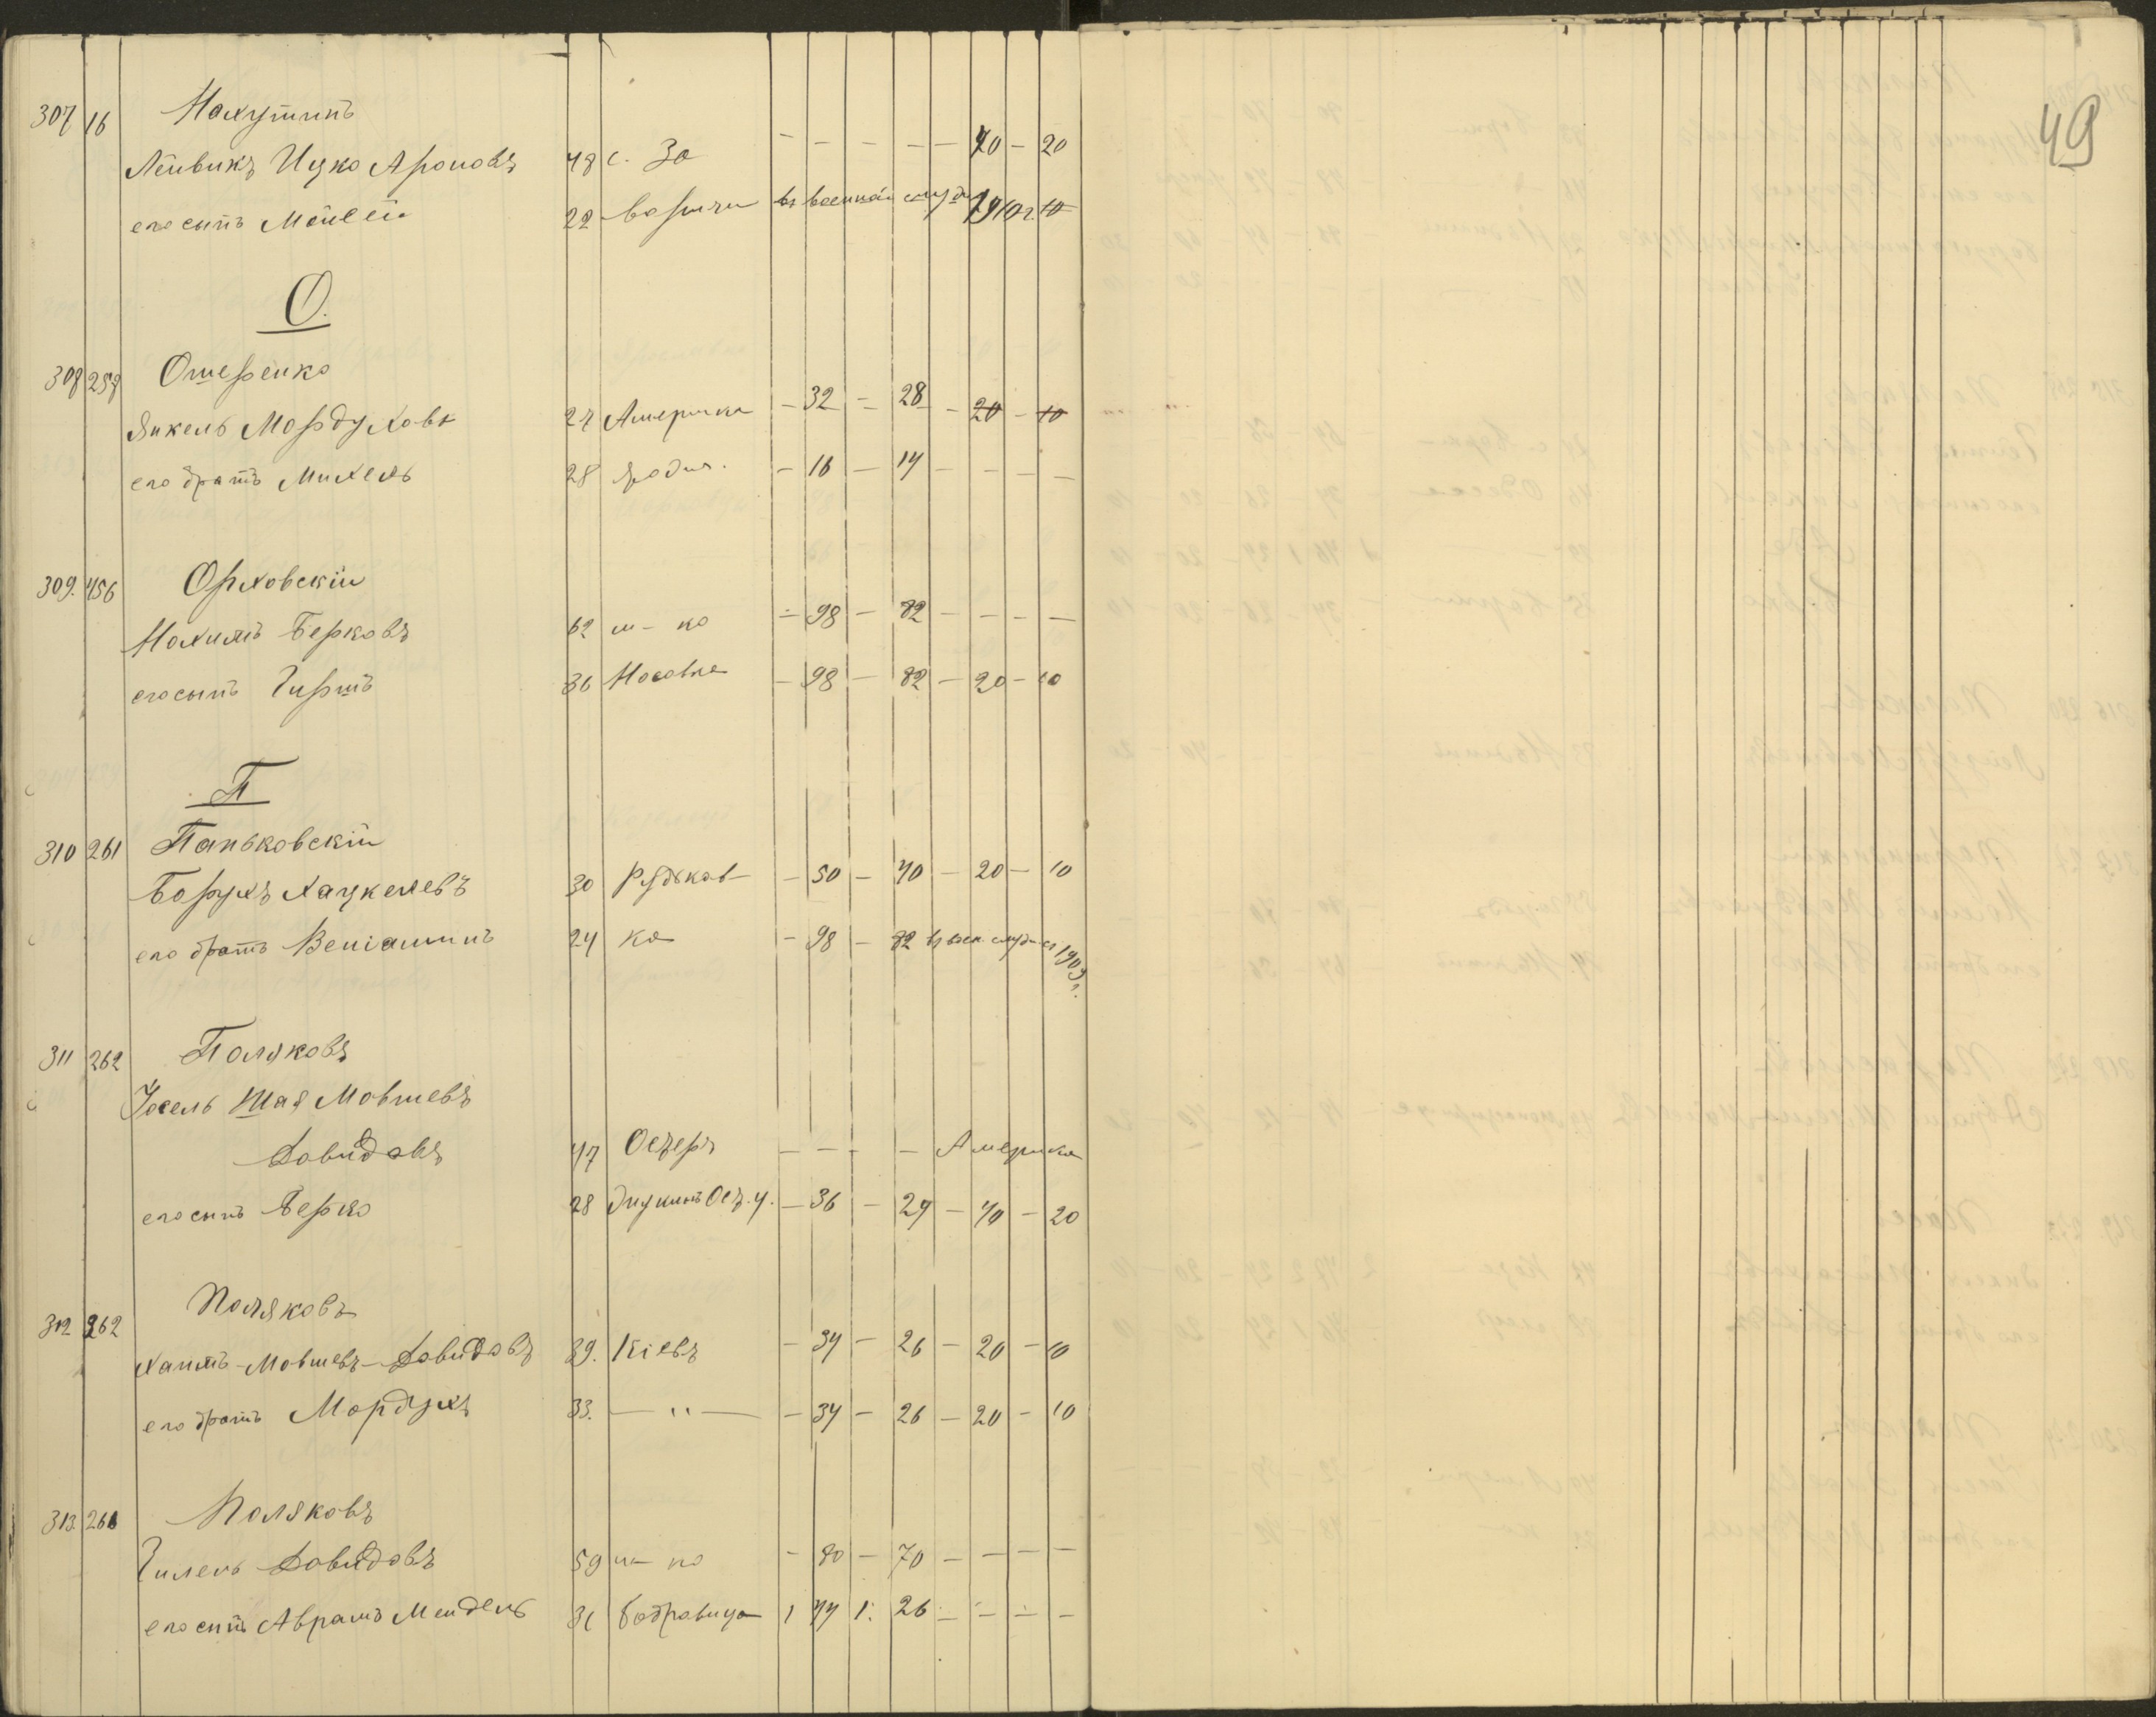 49
307 16 Нахутинъ
Лейвикъ Ицко Ароновъ 48 с. За - - - - - 40 - 20
его сынъ Мойсей 22 воричи въ военной службѣ 1910 г. 10
О.
308 258 Ошеренко
Янкель Мордуховъ 27 Америка - 32 - 28 - 20 - 10
его братъ Михель 28 - 16 - 14 - - - -
309. 456 Орловскій
Нахимъ Берковъ 62 м-ко - 98 - 82 - - - -
его сынъ Гиршъ 36 Носовка - 98 - 82 - 20 - 10
П
310 261 Паньковскій
Борухъ Хацкелевъ 30 Рудьков - 50 - 40 - 20 - 10
его братъ Веніаминъ 24 ка - 98 - 82 въ воен. служ. съ 1909 г.
311 262 Поляковъ
Іосель Шая Мовшевъ
Давидовъ 47 Остеръ - - - - Америка
его сынъ Берко 28 Ост. у. - 36 - 24 - 40 - 20
Поляковъ
312 262 Хаимъ-Мовшевъ-Давидовъ 39. Кіевъ - 34 - 26 - 20 - 10
его братъ Мордухъ 33. — " — - 34 - 26 - 20 - 10
313. 261 Поляковъ
Гилель Давидовъ 59 м-ко - 80 - 70 - - - -
его сынъ Абрамъ Мендель 31 Бобровица 1 44 1. 26 - - - -